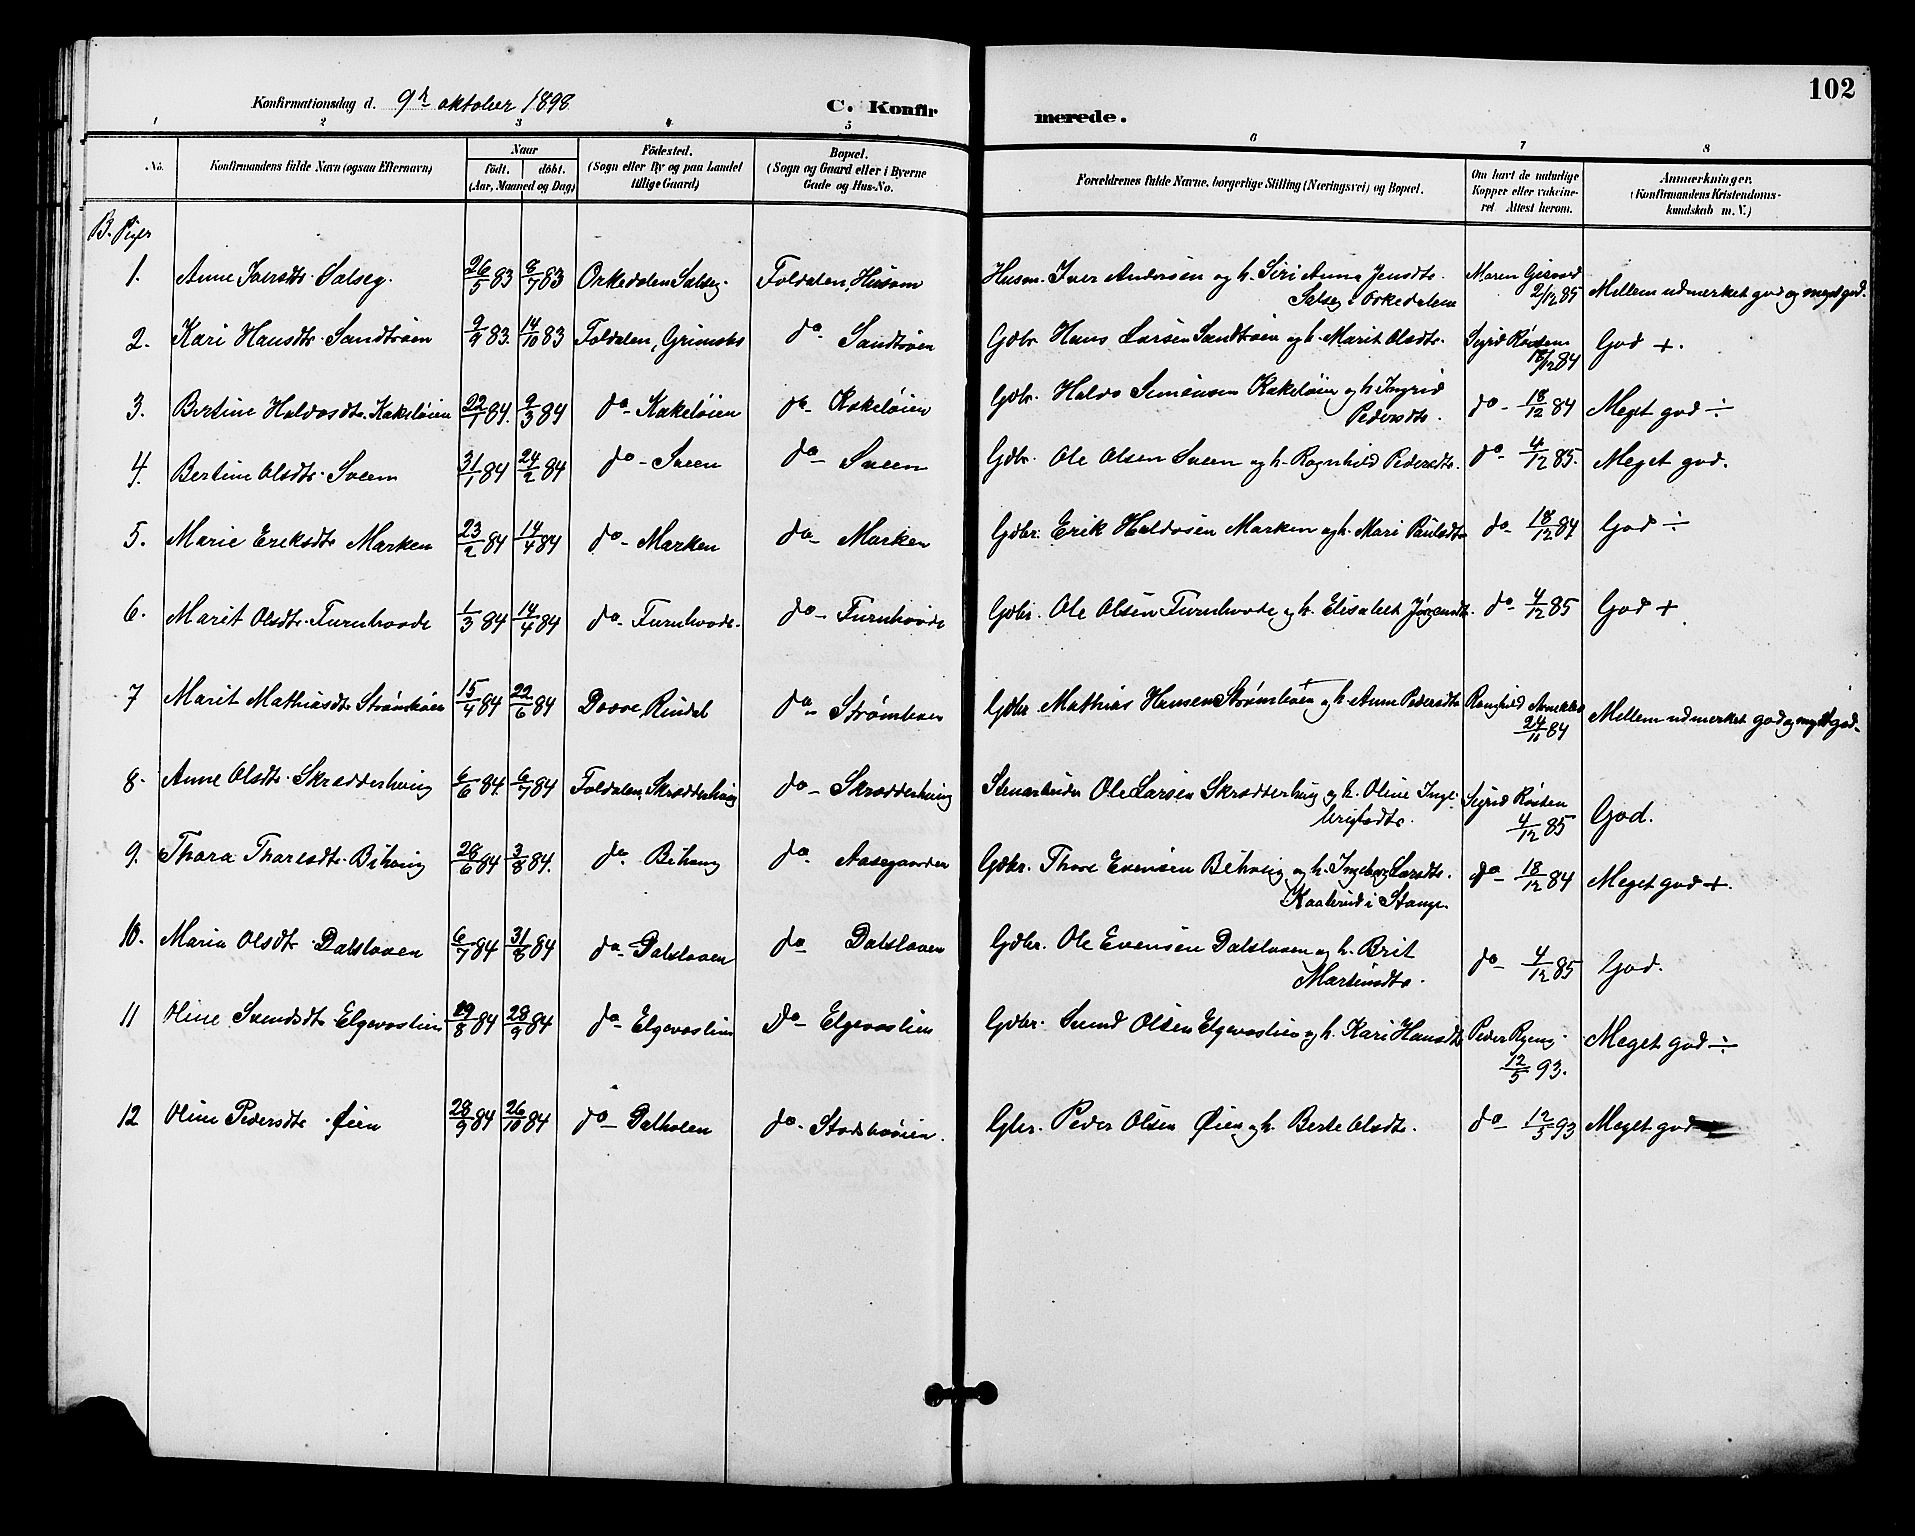 102
Konfirmationsdag d. 9de oktober 1898 C. Konfirmerede.
1 2 3 4 5 6 7 8
No. Konfirmandens fulde Navn (ogsaa Efternavn) Naar födt. döbt. (Aar, Maaned og Dag) Födested. (Sogn eller By og paa Landet tillige Gaard) Bopæl. (Sogn og Gaard eller i Byerne Gade og Hus-No. Forældrenes fulde Navne, borgerlige Stilling (Næringsvei) og Bopæl. Om havt de naturlige Kopper eller vakcineret Attest herom. Anmærkninger. (Konfirmandens Kristendomskundskab m. V.)
B. Piger
1. Anne Iversdtr. Salseg. 26/5 83 8/7 83 Orkedalen Salseg. Foldalen, Husom Husm. Iver Andersen og h. Siri Anna Jensdtr. Maren Gjersvd 2/12 85 Mellem udmerket god og meget god.
Salseg i Orkedalen
2. Kari Hansdtr. Sandtrøen 9/9 83. 14/10 83 Foldalen, Grimsbo do Sandtrøen Gdbr. Hans Larsen Sandtrøen og h. Marit Olsdtr. Sigrid Røsten 18/12 84 God +.
3. Bertine Halvosdtr. Kakeløien 22/1 84. 9/3 84 do Kakeløien do Kakeløien Gdbr. Halvo Simensen Kakeløien og h. Ingrid do 18/12 84 Meget god ÷
Pedersdtr.
4. Bertine Olsdtr. Sveen 31/1 84 24/2 84 do Sveen do Sveen Gdbr. Ole Olsen Sveen og h. Ragnhild Pedersdtr. do 4/12 85. Meget god.
5. Marie Eriksdtr Marken 23/2 84 14/4 84 do Marken do Marken Gdbr. Erik Halvosen Marken og h. Mari Paulsdtr do 18/12 84 God ÷
6. Marit Olsdtr. Furuhovde 1/3 84 14/4 84 do Furuhovde. do Furuhovde Gdbr. Ole Olsen Furuhovde og h. Elisabet do 4/12 85 God +
7 Marit Mathiasdtr Strømhaien 15/4 84 22/6 84 Dovre, Rindal do Strømhaien Gdbr Mathias Hansen Strømhaien + og h. Anne Pedersdtr 24/11 84 Mellem udmerket god og meget god.
8. Anne Olsdtr. Skrædderhaug 6/6 84. 6/7 84 Foldalen, Skrædderhaug do Skrædderhaug Stenarbeider Ole Larsen Skrædderhaug og h. Oline Ingebrigtsdtr. Sigrid Røsten 4/12 85 God.
9. Thora Thoresdtr. Bihaug 28/6 84 3/8 84. do Bihaug do Aasegaarden Gdbr. Thore Evensen Bihaug og h. Ingeborg Larsdtr. do 18/12 84 Meget god +.
Kaalerud i Stange.
10. Maria Olsdtr. Dalsloven 6/7 84 31/8 84 do Dalsloven do Dalsloven Gdbr. Ole Evensen Dalsloven og h. Brit do 4/12 85 God.
Martinsdtr.
11 Oline Svendsdtr. Elgevaslien 19/8 84 28/9 84 do Elgevaslien Do Elgevaslien Gdbr. Svend Olsen Elgevaslien og h. Kari Hansdtr Peder Ryeng 12/5 93. Meget god ÷
12 Oline Pedersdtr. Øien 28/9 84 26/10 84 do Dalholen do. Gbr. Peder Olsen Øien og h. Berte Olsdtr. do 12/5 93 Meget god